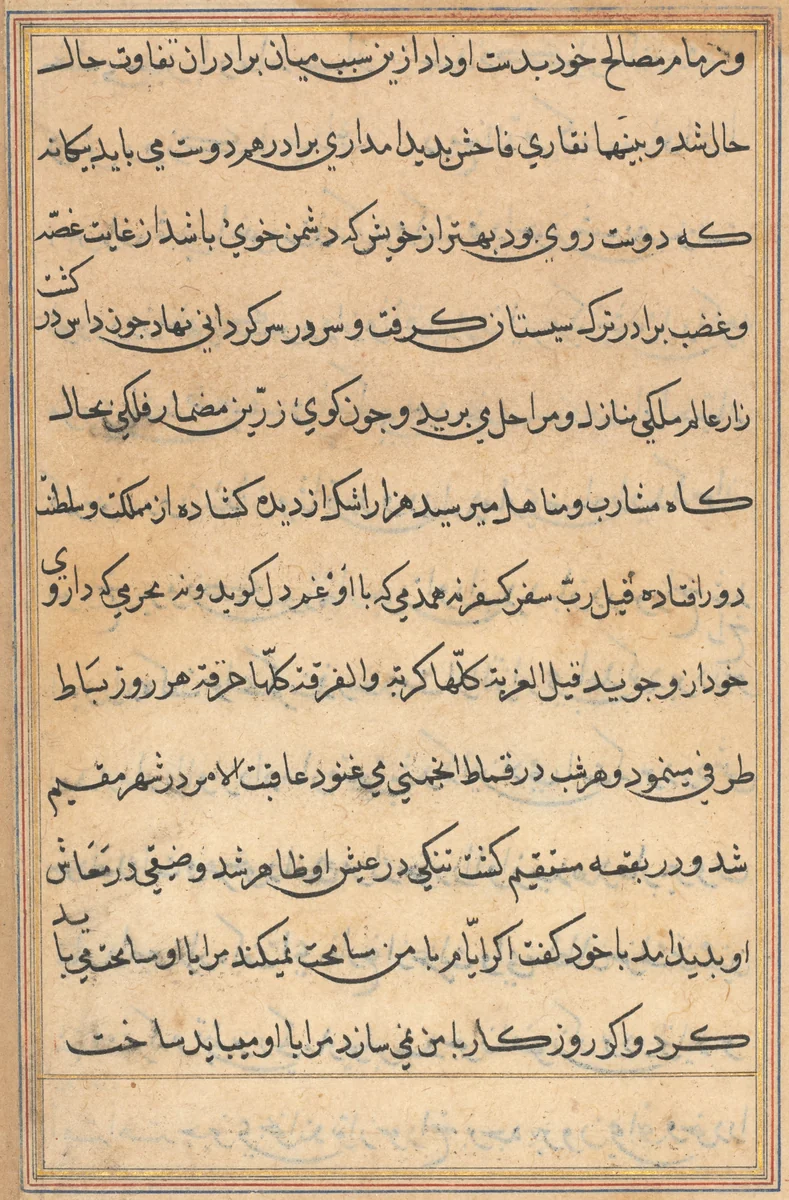 وزمام مصالح خود بدست او داد ازین سبب میان برادران تفاوت حال
حال شد و بینهما نقاری فاحش بدید امد اری برادر هم دوست می باید بیکانه
که دوست روی بود بهتر از خویش که دشمن خوی باشد از غایت غصّه
و غضب برادر ترک سیستان کرفت و سر در سرکردانی نهاد جون داس در کشت
زار عالم ملکی منازل و مراحل می برید و جون کوی زرّین مضمار فلکی بحال
کاه مشارب و مناهل میرسید هزار اشک از دیده کشاده از مملکت و سلطنت
دور افتاده قیل ربّ سفر کسفر نه همدمی که با او غم دل کوید و نه محرمی که داروی
خود از و جوید قیل الغربة کلّها کربة والفرقة کلّها حرقة هر روز بساط
طرفی میپیمود و هر شب در قماط انجمنی می غنود عاقبت الامر در شهر مقیم
شد و در بقعه مستقیم کشت تنکی در عیش او ظاهر شد و ضیقی در مَعَاش
او بدید امد با خود کفت اکر ایّام با من مسامحت نمیکند مرا با او مسامحت می باید
کرد و اکر روزکار با من نمی سازد مرا با او میباید ساخت